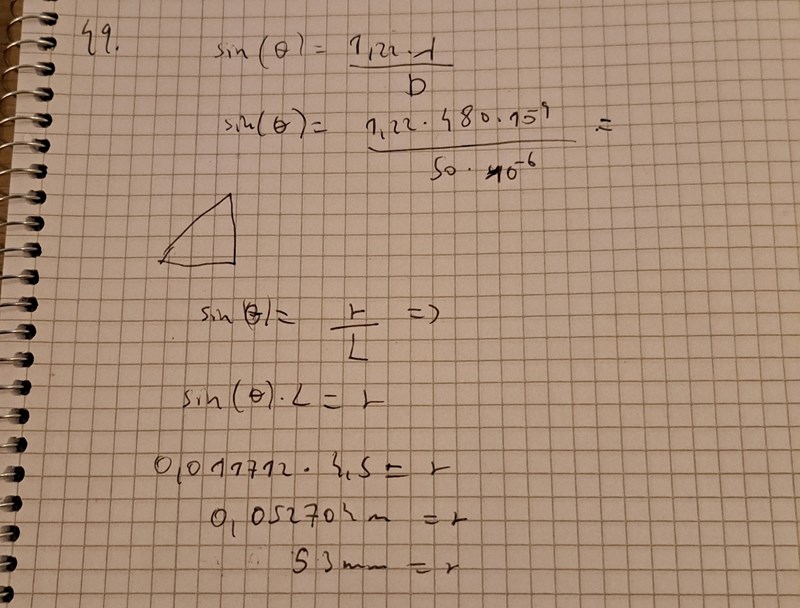 49.
sin(θ) = 1,22·λ / D
sin(θ) = 1,22·480·10⁻⁹ / 50·10⁻⁶ =
sin(θ) = r / L =>
sin(θ)·L = r
0,011712·4,5 = r
0,052704m = r
53mm = r